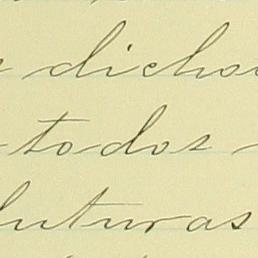 dicho
todos
futuras